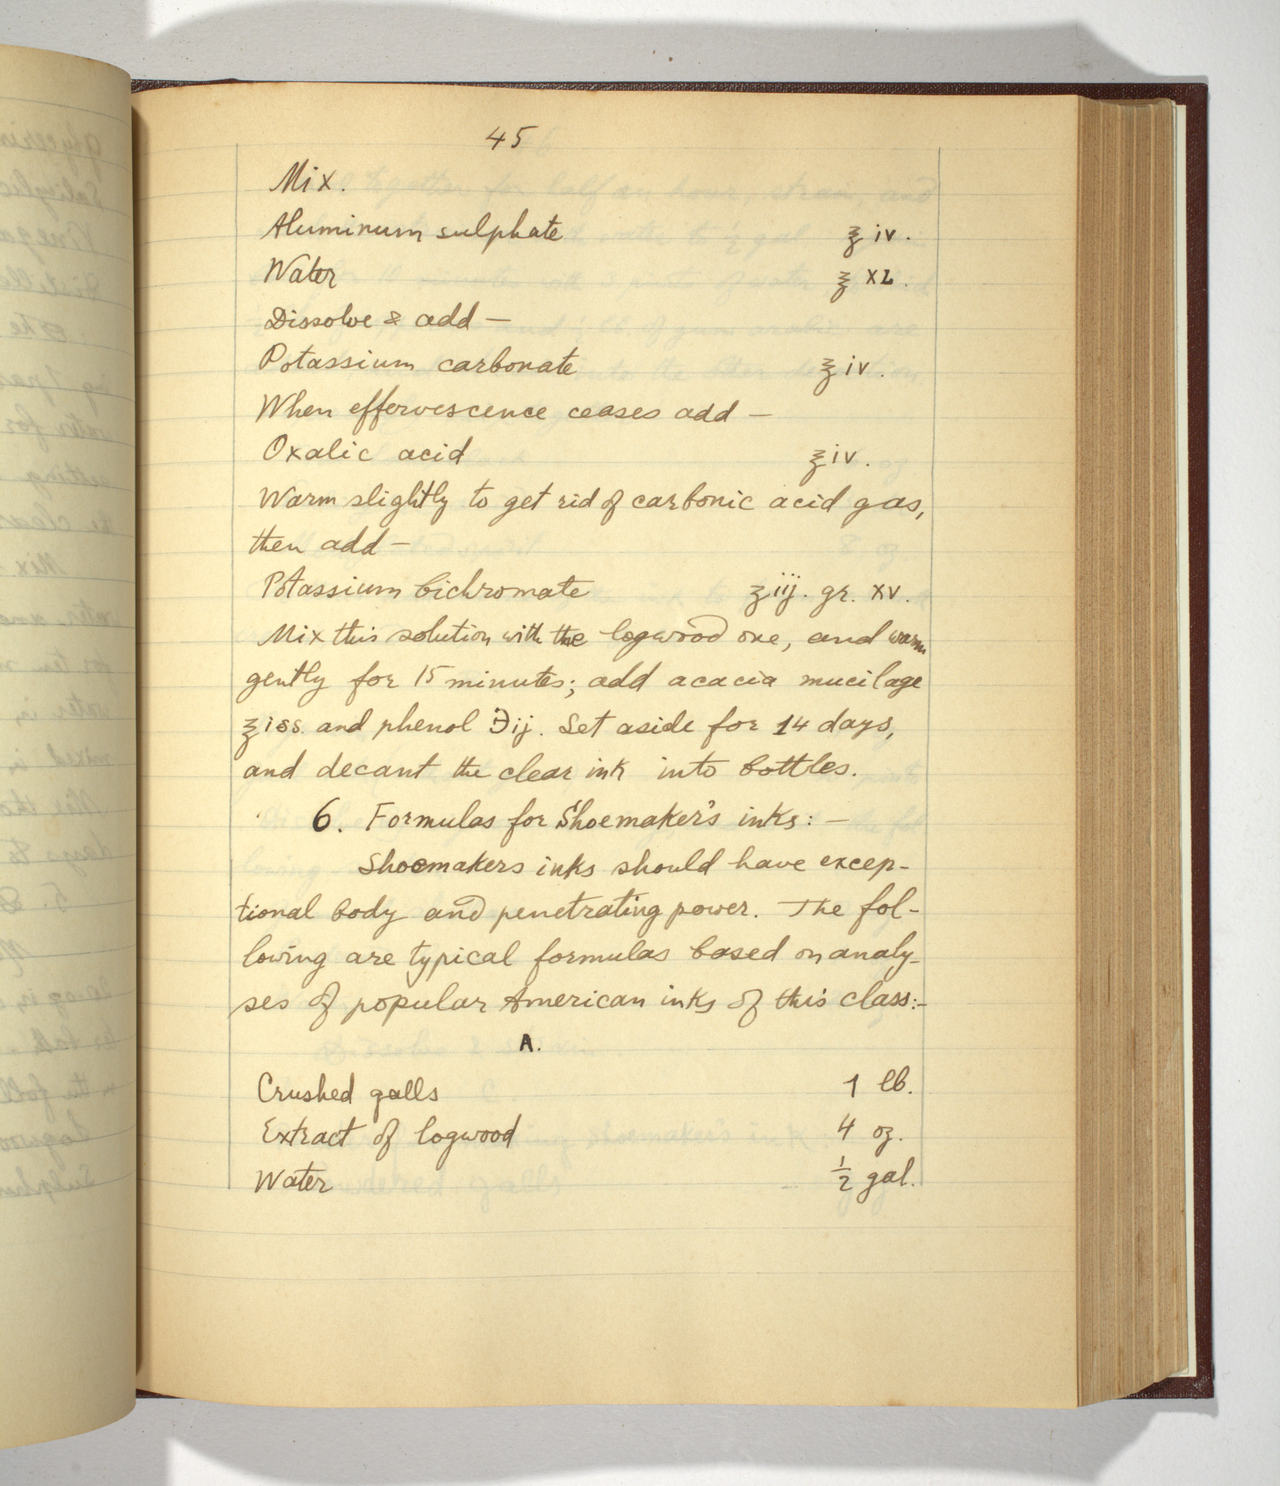 45
Mix.
Aluminum sulphate ℥ iv.
Water ℥ XL.
Dissolve & add —
Potassium carbonate ℥ iv.
When effervescence ceases add —
Oxalic acid ℥ iv.
Warm slightly to get rid of carbonic acid gas,
then add —
Potassium bichromate ʒ iij. gr. xv.
Mix this solution with the logwood one, and warm
gently for 15 minutes; add acacia mucilage
℥ iss. and phenol ℈ ij. Set aside for 14 days,
and decant the clear ink into bottles.
6. Formulas for Shoemaker's inks: —
Shoemakers inks should have excep-
tional body and penetrating power. The fol-
lowing are typical formulas based on analy-
ses of popular American inks of this class:-
A.
Crushed galls 1 lb.
Extract of logwood 4 oz.
Water ½ gal.